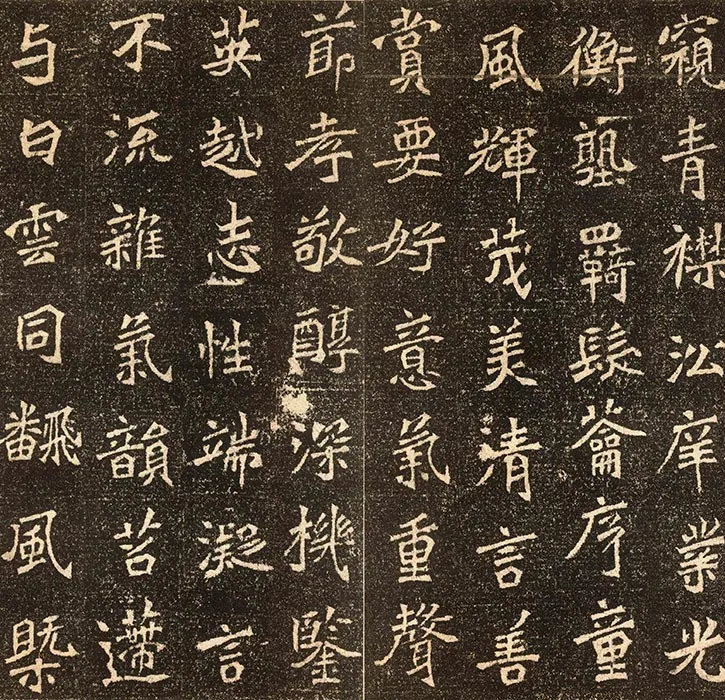 窺青襟㳂庠業光
衡塾羈髮蘥序童
風輝茂美清言善
賞要好意氣重聲
節孝敬醇深機鑒
英越志性端凝言
不流雜氣韻苕遰
与白雲同飜風槩